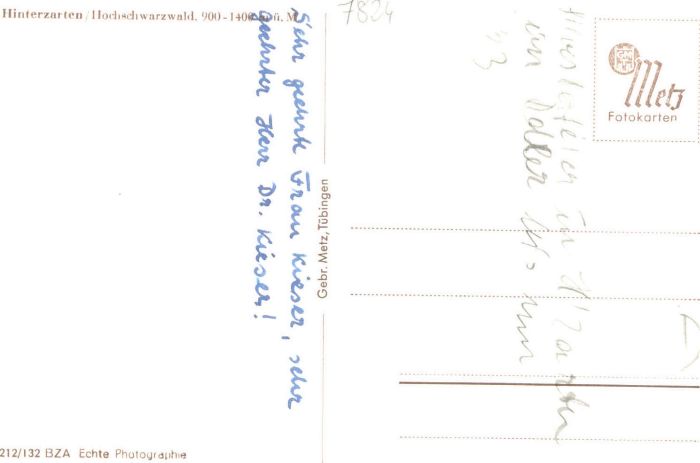 Hinterzarten / Hochschwarzwald, 900-1400 m ü. M.
7824
Sehr geehrte Frau Kieser, sehr
geehrter Herr Dr. Kieser!
in H'zarten
im Adler
Metz
Fotokarten
Gebr. Metz, Tübingen
212/132 BZA Echte Photographie